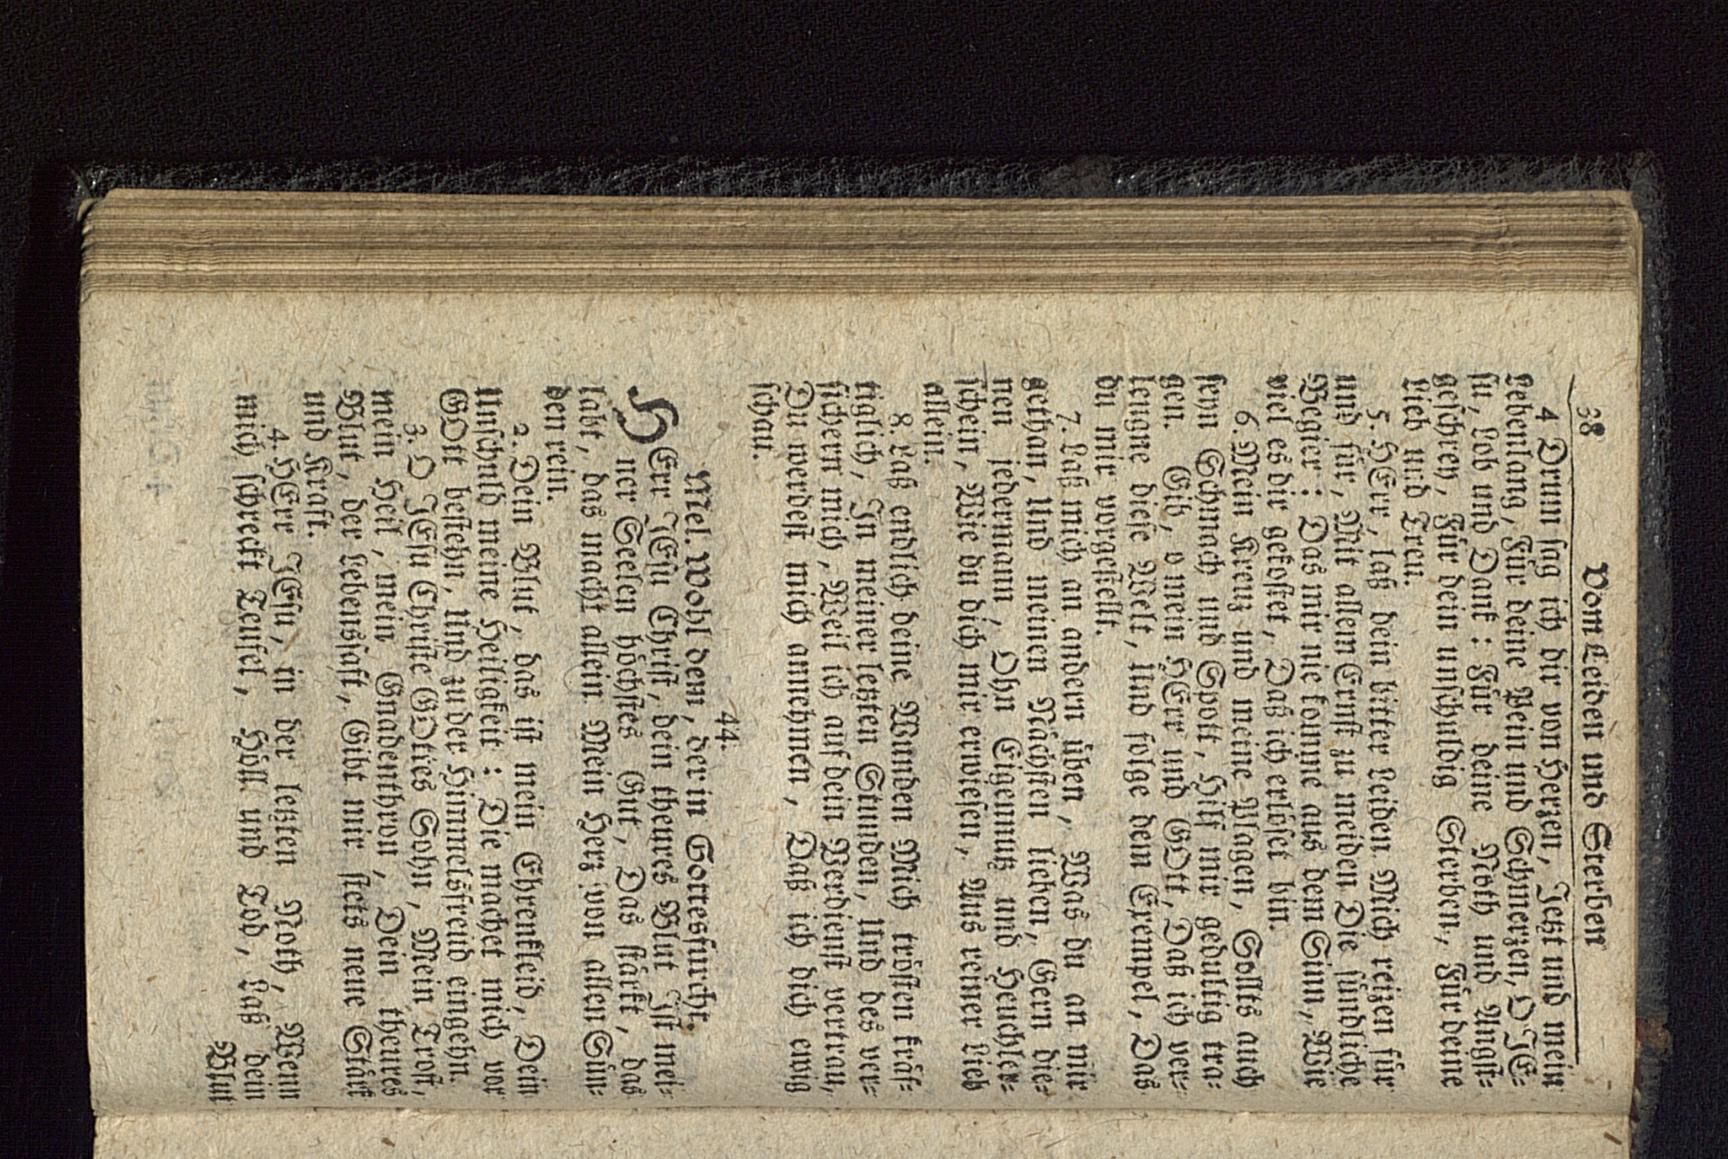 38 Vom Leiden und Sterben
4 Drum sag ich dir von Herzen, Jetzt und mein
Lebenlang, Für deine Pein und Schmerzen, O JE-
su, Lob und Dank: Für deine Noth und Angst-
geschrey, Für dein unschuldig Sterben, Für deine
Lieb und Treu.
5. HErr, laß dein bitter Leiden Mich reizen für
und für, Mit allem Ernst zu meiden Die sündliche
Begier: Das mir nie komme aus dem Sinn, Wie
viel es dir gekostet, Daß ich erlöset bin.
6 Mein Kreuz und meine Plagen, Sollts auch
seyn Schmach und Spott, Hilf mir gedultig tra-
gen. Gib, o mein HErr und GOtt, Daß ich ver-
leugne diese Welt, Und folge dein Exempel, Das
du mir vorgestellt.
7. Laß mich an andern üben, Was du an mir
gethan, Und meinen Nächsten lieben, Gern die-
nen jedermann, Ohn Eigennutz und Heuchler-
schein, Wie du dich mir erwiesen, Aus reiner Lieb
allein.
8. Laß endlich deine Wunden Mich trösten kräf-
tiglich, In meiner letzten Stunden, Und des ver-
sichern mich, Weil ich auf dein Verdienst vertrau,
Du werdest mich annehmen, Daß ich dich ewig
schau.
44.
Mel. Wohl dem, der in Gottesfurcht.
HErr JEsu Christ, dein theures Blut Ist mei-
ner Seelen höchstes Gut, Das stärkt, das
labt, das macht allein Mein Herz von allen Sün-
den rein.
2. Dein Blut, das ist mein Ehrenkleid, Dein
Unschuld meine Heiligkeit: Die machet mich vor
GOtt bestehn, Und zu der Himmelsfreud eingehn.
3. O JEsu Christe GOttes Sohn, Mein Trost,
mein Heil, mein Gnadenthron, Dein theures
Blut, der Lebenssaft, Gibt mir stets neue Stärk
und Kraft.
4. HErr JEsu, in der letzten Noth, Wenn
mich schreckt Teufel, Höll und Tod, Laß dein
Blut